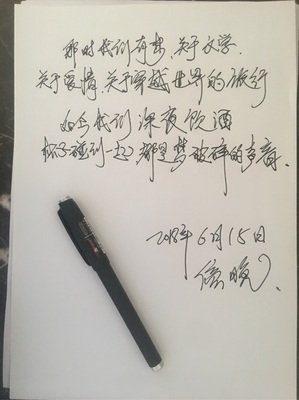 那时我们有梦,关于文学,
关于爱情,关于穿越世界的旅行
如今我们深夜饮酒
杯子碰到一起,都是梦破碎的声音.
2018年6月15日